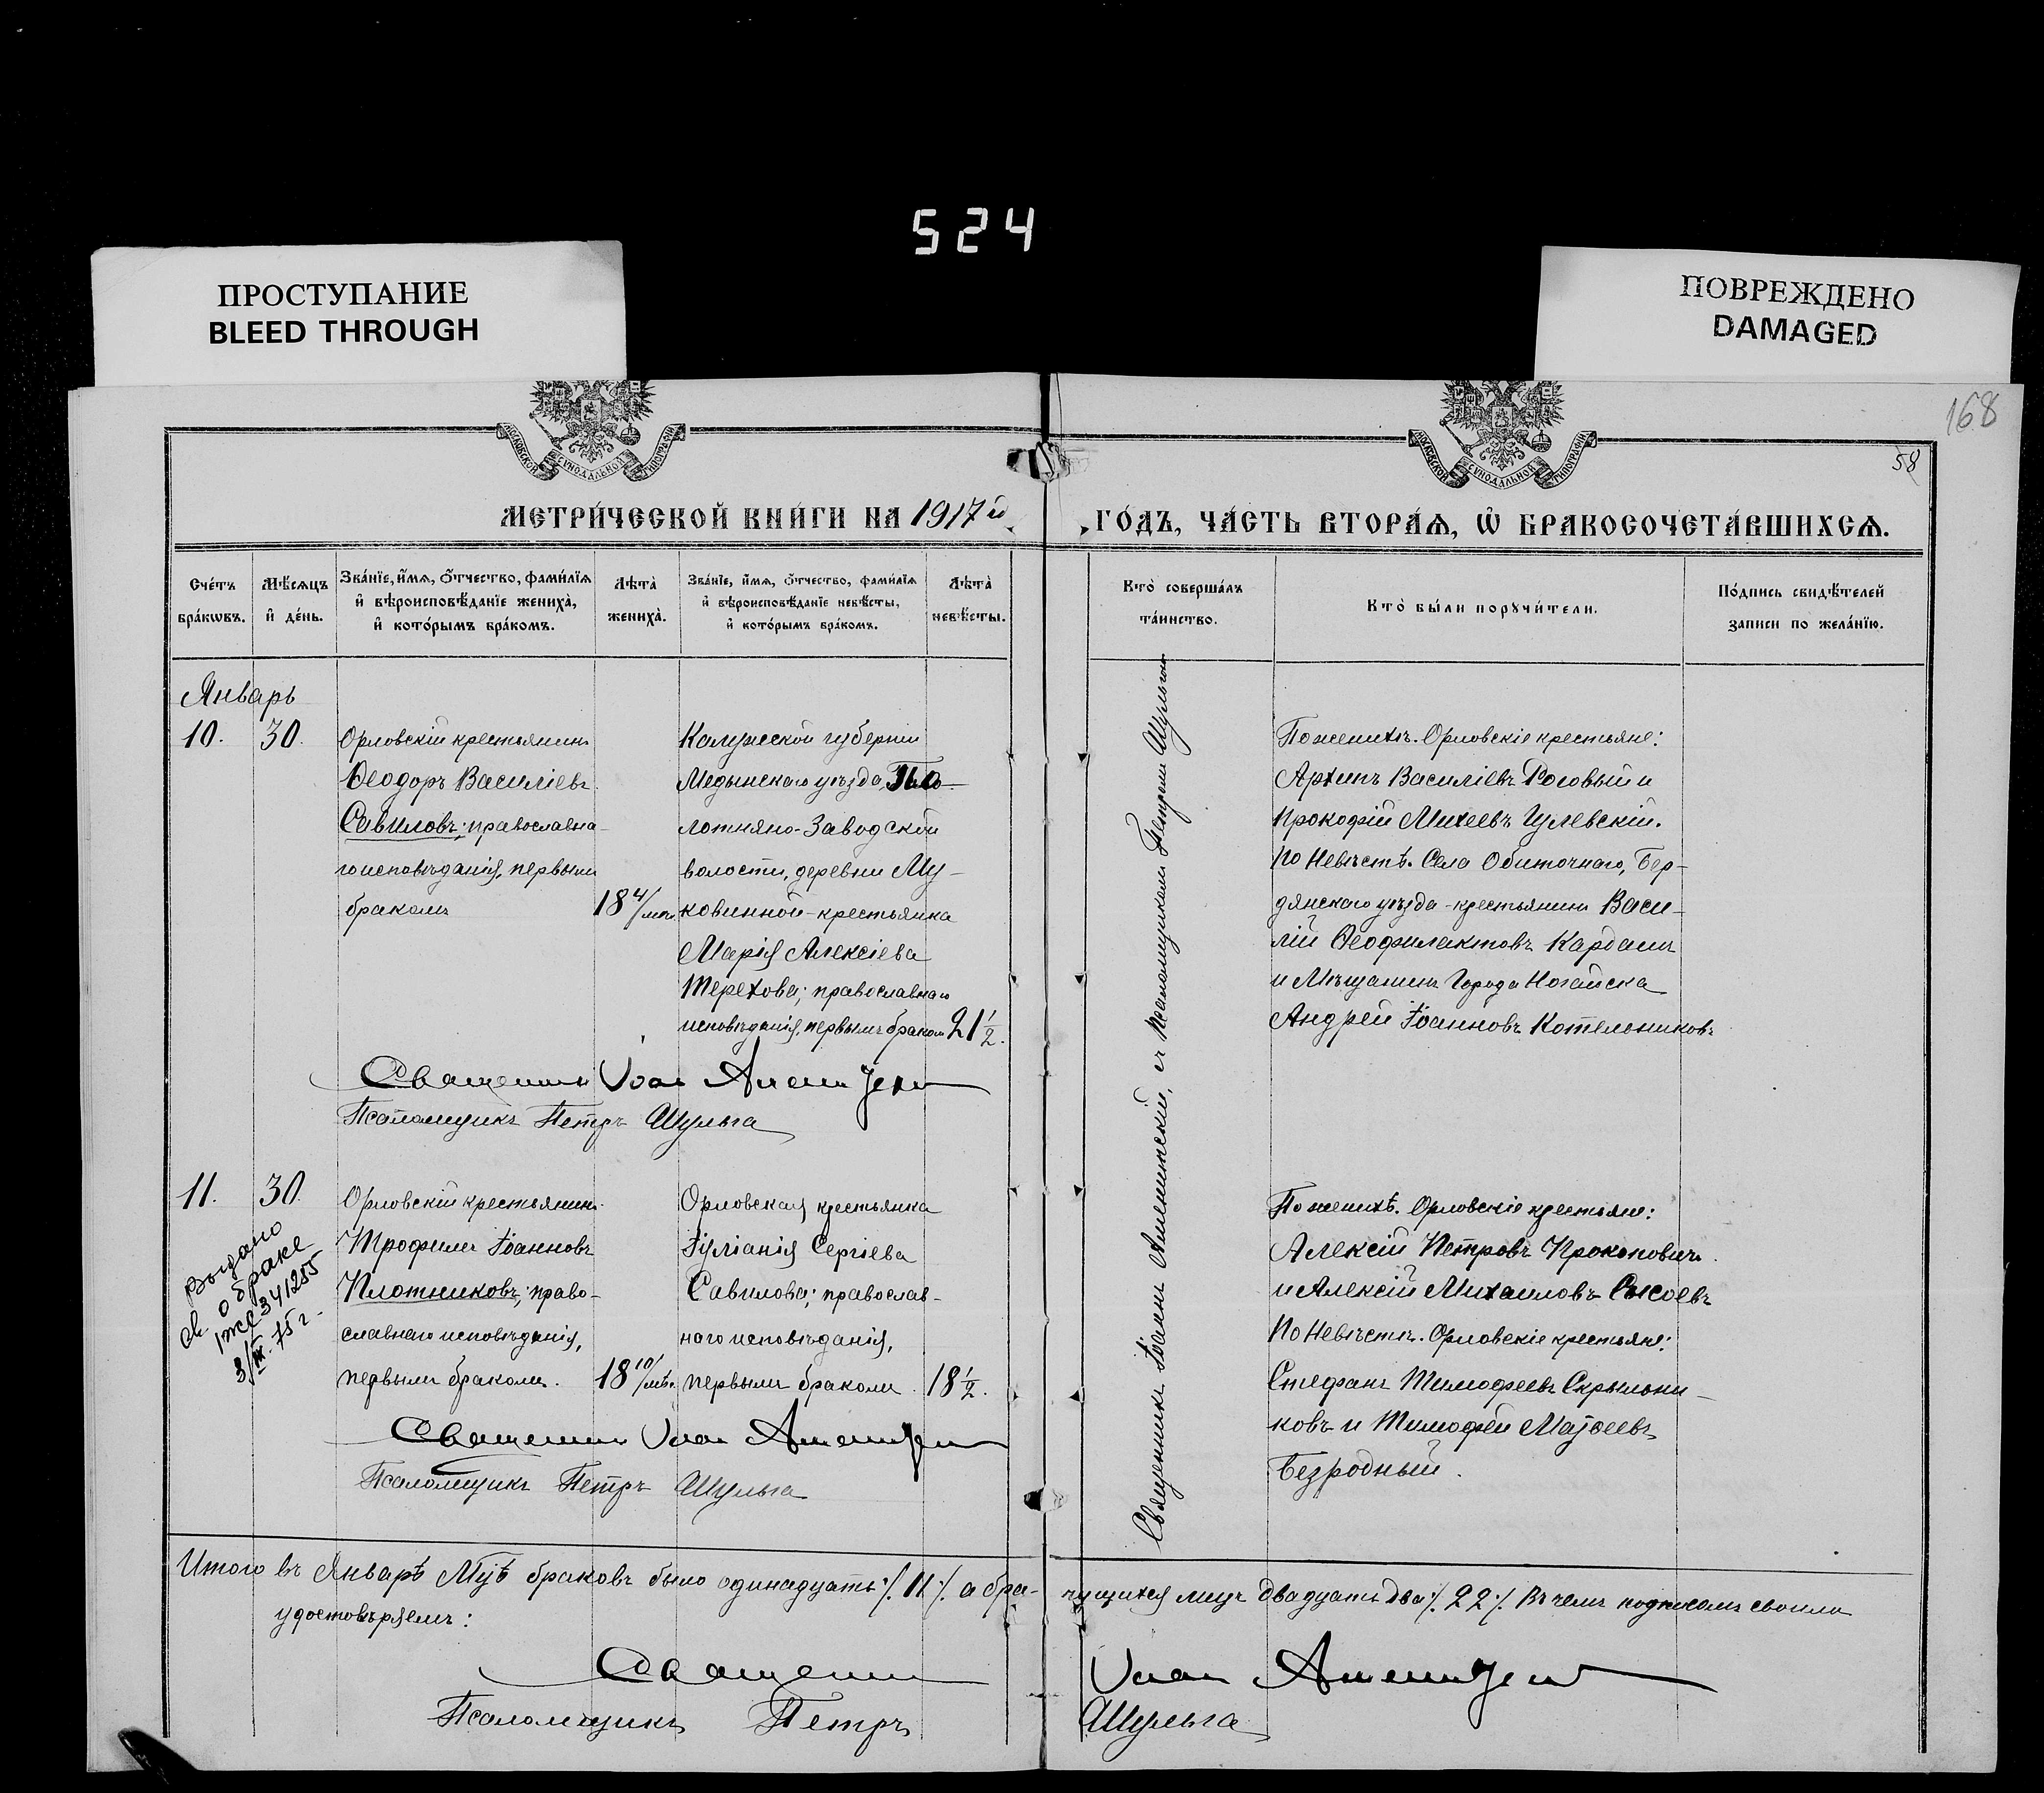 524
ПРОСТУПАНИЕ
BLEED THROUGH
ПОВРЕЖДЕНО
DAMAGED
168
58
МОСКОВСКОЙ СѴНОДАЛЬНОЙ ТИПОГРАФІИ
МОСКОВСКОЙ СѴНОДАЛЬНОЙ ТИПОГРАФІИ
МЕТРИ́ЧЕСКОЙ КНИ́ГИ НА 1917й
ГО́ДЪ, ЧА́СТЬ ВТОРА́Ѧ, Ѡ҆ БРАКОСОЧЕТА́ВШИХСѦ.
Сче́тъ
бра́кѡвъ.
Мѣ́сѧцъ
и҆ де́нь.
Зва́нїе, и҆́мѧ, ѻ҆́тчество, фами́лїѧ
и҆ вѣроисповѣ́данїе жениха̀,
и҆ кото́рымъ бра́комъ.
Лѣта̀
жениха̀.
Зва́нїе, и҆́мѧ, ѻ҆́тчество, фами́лїѧ
и҆ вѣроисповѣ́данїе невѣ́сты,
и҆ кото́рымъ бра́комъ.
Лѣта̀
невѣ́сты.
Кто̀ соверша́лъ
та́инство.
Кто̀ бы́ли порꙋчи́тели.
По́дпись свидѣ́телей
записи по жела́нїю.
Январь
10.
30.
Орловскій крестьянинъ
Ѳеодоръ Василіевъ
Савиловъ; православна-
го исповѣданія, первымъ
бракомъ
18 4/мѣс.
Калужской губерніи
Медынскаго уѣзда, Поло-
лотняно-Заводской
волости, деревни Му-
ковинной - крестьянка
Марія Алексіева
Терехова; православнаго
исповѣданія, первымъ бракомъ
21 1/2.
По женихѣ. Орловскіе крестьяне:
Архипъ Василіевъ Роговый и
Прокофій Михеевъ Гулевскій.
По Невѣстѣ. Села Обиточнаго, Бер-
дянскаго уѣзда - крестьянинъ Васи-
лій Ѳеофилактовъ Кардашъ
и Мѣщанинъ Города Ногайска
Андрей Іоанновъ Котельниковъ
Священникъ Іоаннъ
Псаломщикъ Петръ Шульга
11.
30.
Выдано
св. о браке
IЖС 341255
75 г.
Орловскій крестьянинъ
Трофимъ Іоанновъ
Плотниковъ; право-
славнаго исповѣданія,
первымъ бракомъ.
18 10/мѣс.
Орловская крестьянка
Іуліанія Сергіева
Савилова; православ-
наго исповѣданія,
первымъ бракомъ.
18 1/2.
По женихѣ. Орловскіе крестьяне:
Алексій Петровъ Прокоповичъ
и Алексій Михаиловъ Сысоевъ
По Невѣстѣ. Орловскіе крестьяне:
Стефанъ Тимофеевъ Скрыльни-
ковъ и Тимофей Матѳеевъ
Безродный.
Священникъ Іоаннъ
Псаломщикъ Петръ Шульга
Священникъ Іоаннъ съ Псаломщикомъ Петромъ Шульгою
Итого въ Январѣ М-цѣ браковъ было одинадцать ./. 11 ./. а бра-
чущихся лицъ двадцать два ./. 22 ./. Въ чемъ подписомъ своимъ
удостовѣряемъ:
Священникъ Іоаннъ
Псаломщикъ Петръ Шульга